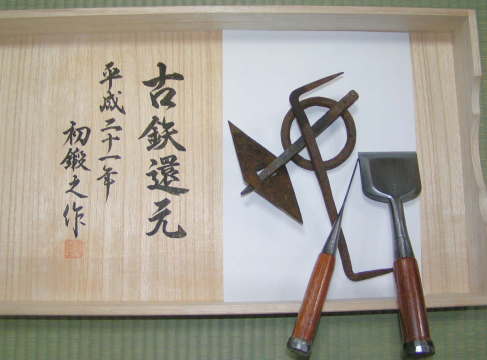 古鉄還元
平成二十一年
初鍛之作